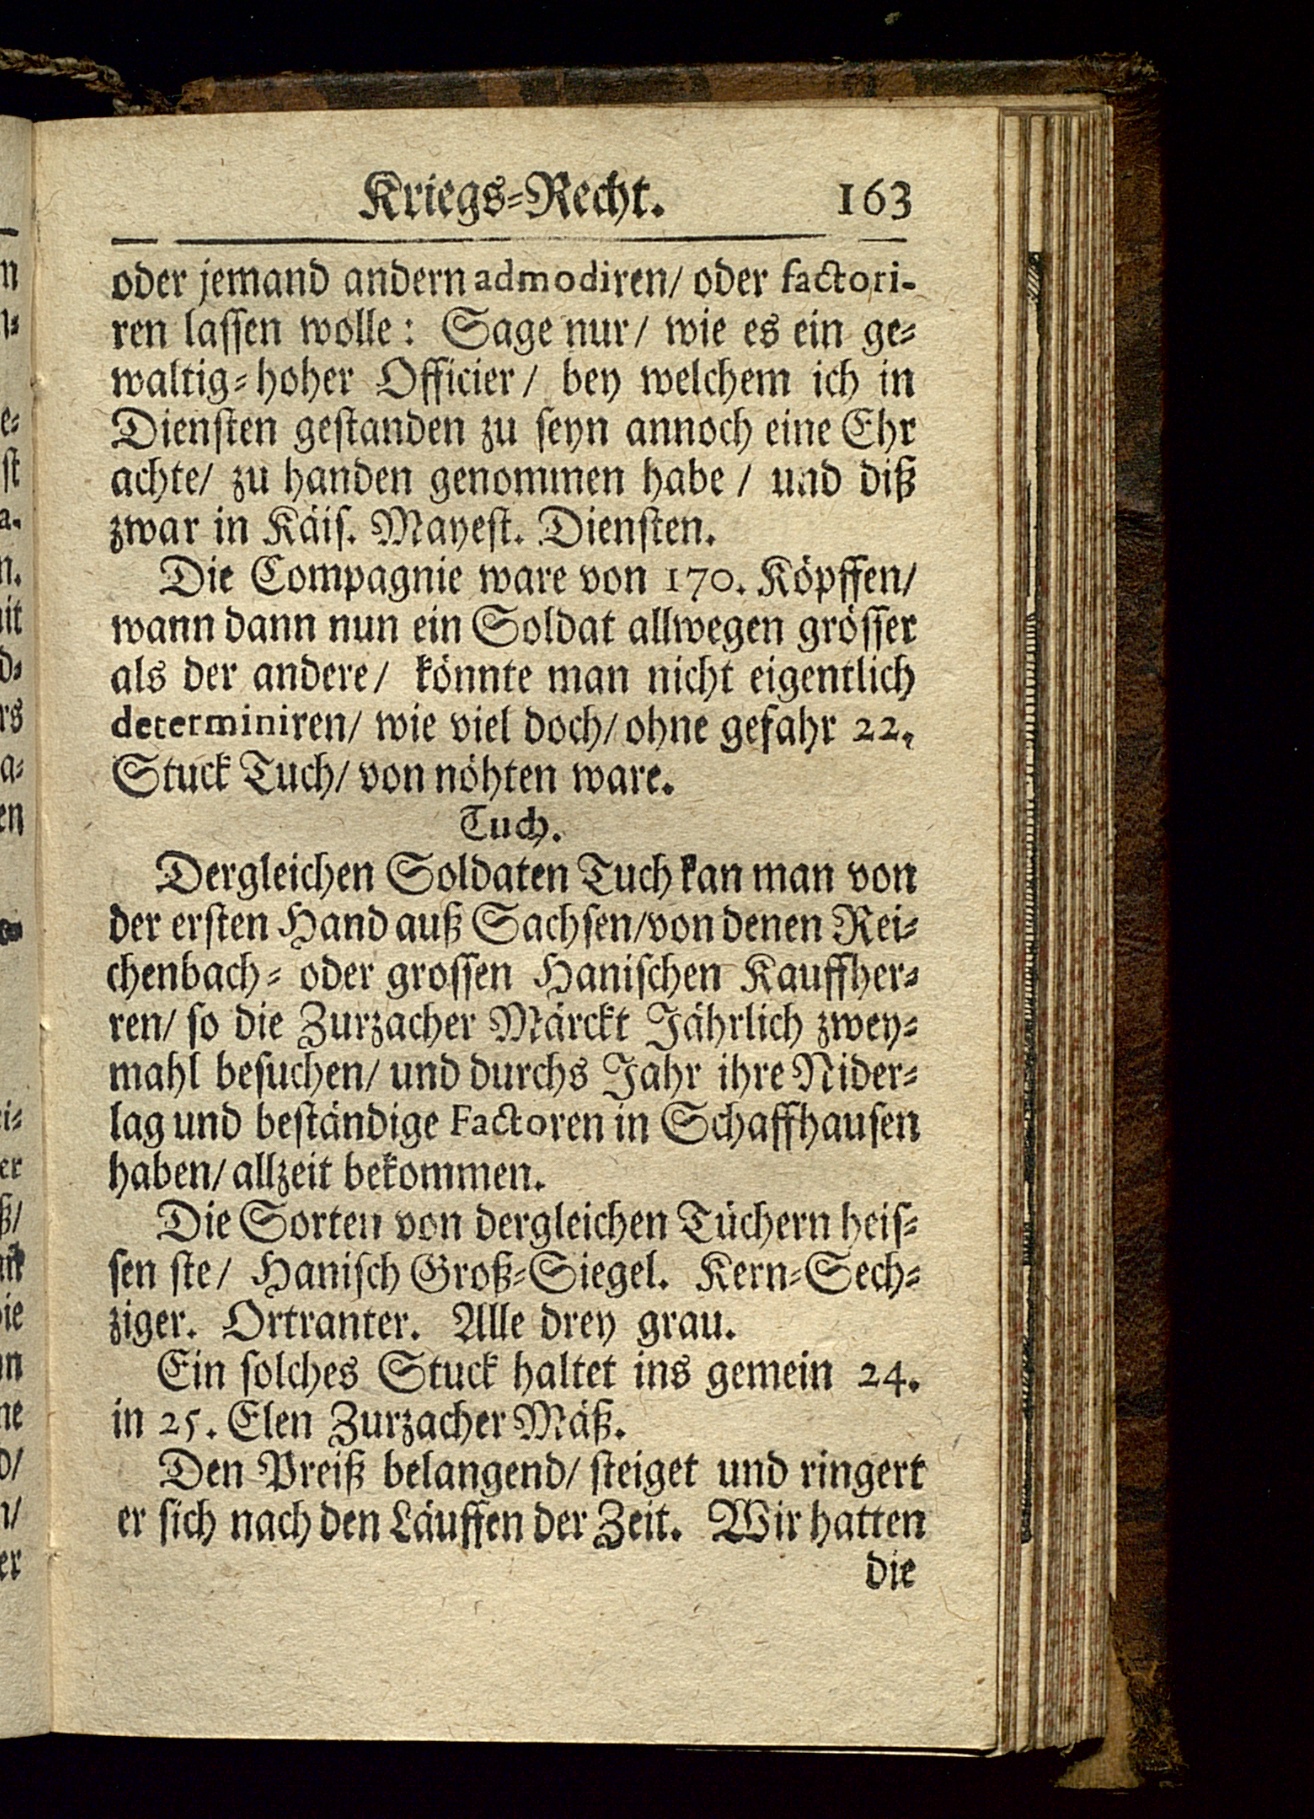 Kriegs-Recht. 163
oder jemand andern admodiren/ oder factori-
ren lassen wolle: Sage nur/ wie es ein ge-
waltig-hoher Officier/ bey welchem ich in
Diensten gestanden zu seyn annoch eine Ehr
achte/ zu handen genommen habe/ und diß
zwar in Käis. Mayest. Diensten.
Die Compagnie ware von 170. Köpffen/
wann dann nun ein Soldat allwegen grösser
als der andere/ könnte man nicht eigentlich
determiniren/ wie viel doch/ ohne gefahr 22.
Stuck Tuch/ von nöhten ware.
Tuch.
Dergleichen Soldaten Tuch kan man von
der ersten Hand auß Sachsen/ von denen Rei-
chenbach- oder grossen Hanischen Kauffher-
ren/ so die Zurzacher Märckt Jährlich zwey-
mahl besuchen/ und durchs Jahr ihre Nider-
lag und beständige Factoren in Schaffhausen
haben/ allzeit bekommen.
Die Sorten von dergleichen Tüchern heis-
sen ste/ Hanisch Groß-Siegel. Kern-Sech-
ziger. Ortranter. Alle drey grau.
Ein solches Stuck haltet ins gemein 24.
in 25. Elen Zurzacher Mäß.
Den Preiß belangend/ steiget und ringert
er sich nach den Läuffen der Zeit. Wir hatten
die